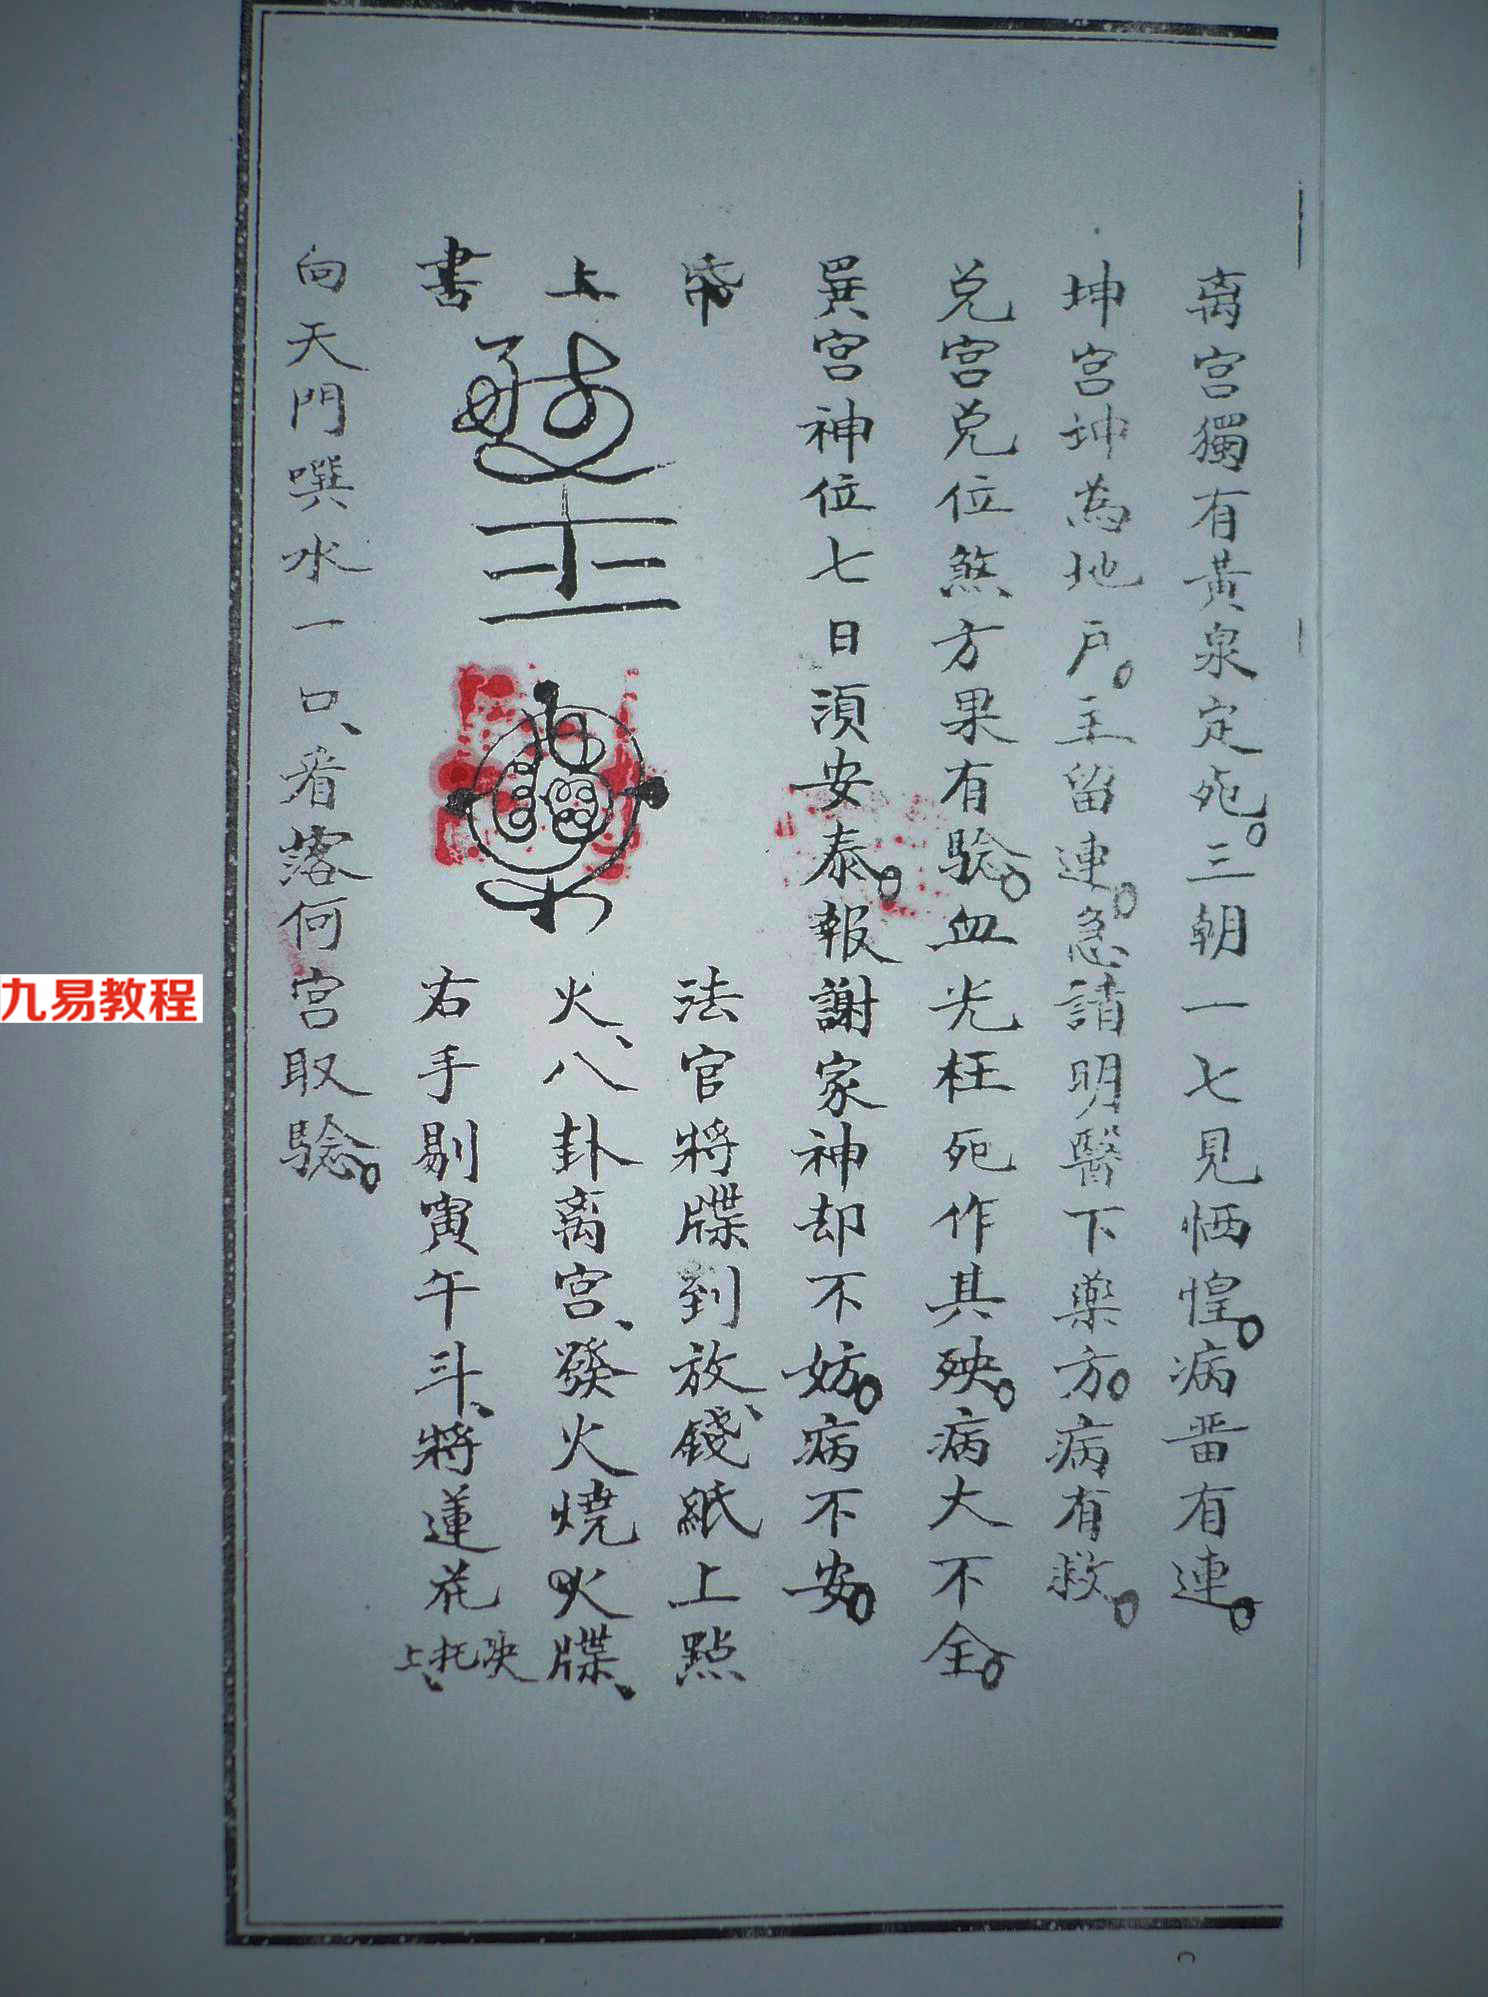 离宫獨有黃泉定死。三朝一七見恓惶。病畨有連。
坤宫坤為地户。主留連。急請明醫下藥方。病有救。
兑宫兑位煞方果有驗。血光枉死作其殃。病大不全。
巽宫神位七日湏安泰。報謝家神却不妨。病不安。
帝
法官將牒到放、錢紙上點
上
火、八卦离宫、發火燒火牒、
書
右手剔寅午斗、將蓮花
上、托
向天門噀水一口、看落何宫取驗。
九易教程